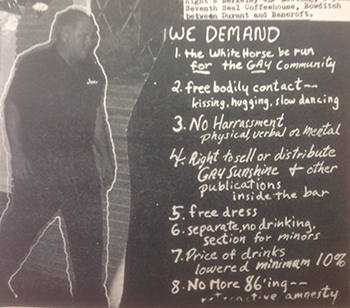 Seventh Seal Coffeehouse, Bowditch
between Durant and Bancroft.
WE DEMAND
1. the White Horse be run
for the GAY Community
2. free bodily contact--
kissing, hugging, slow dancing
3. No Harrassment
physical, verbal or mental
4. Right to sell or distribute
GAY Sunshine & other
publications
inside the bar
5. free dress
6. separate, no drinking,
section for minors
7. Price of drinks
lowered minimum 10%
8. No More 86'ing--
retroactive amnesty
Joe